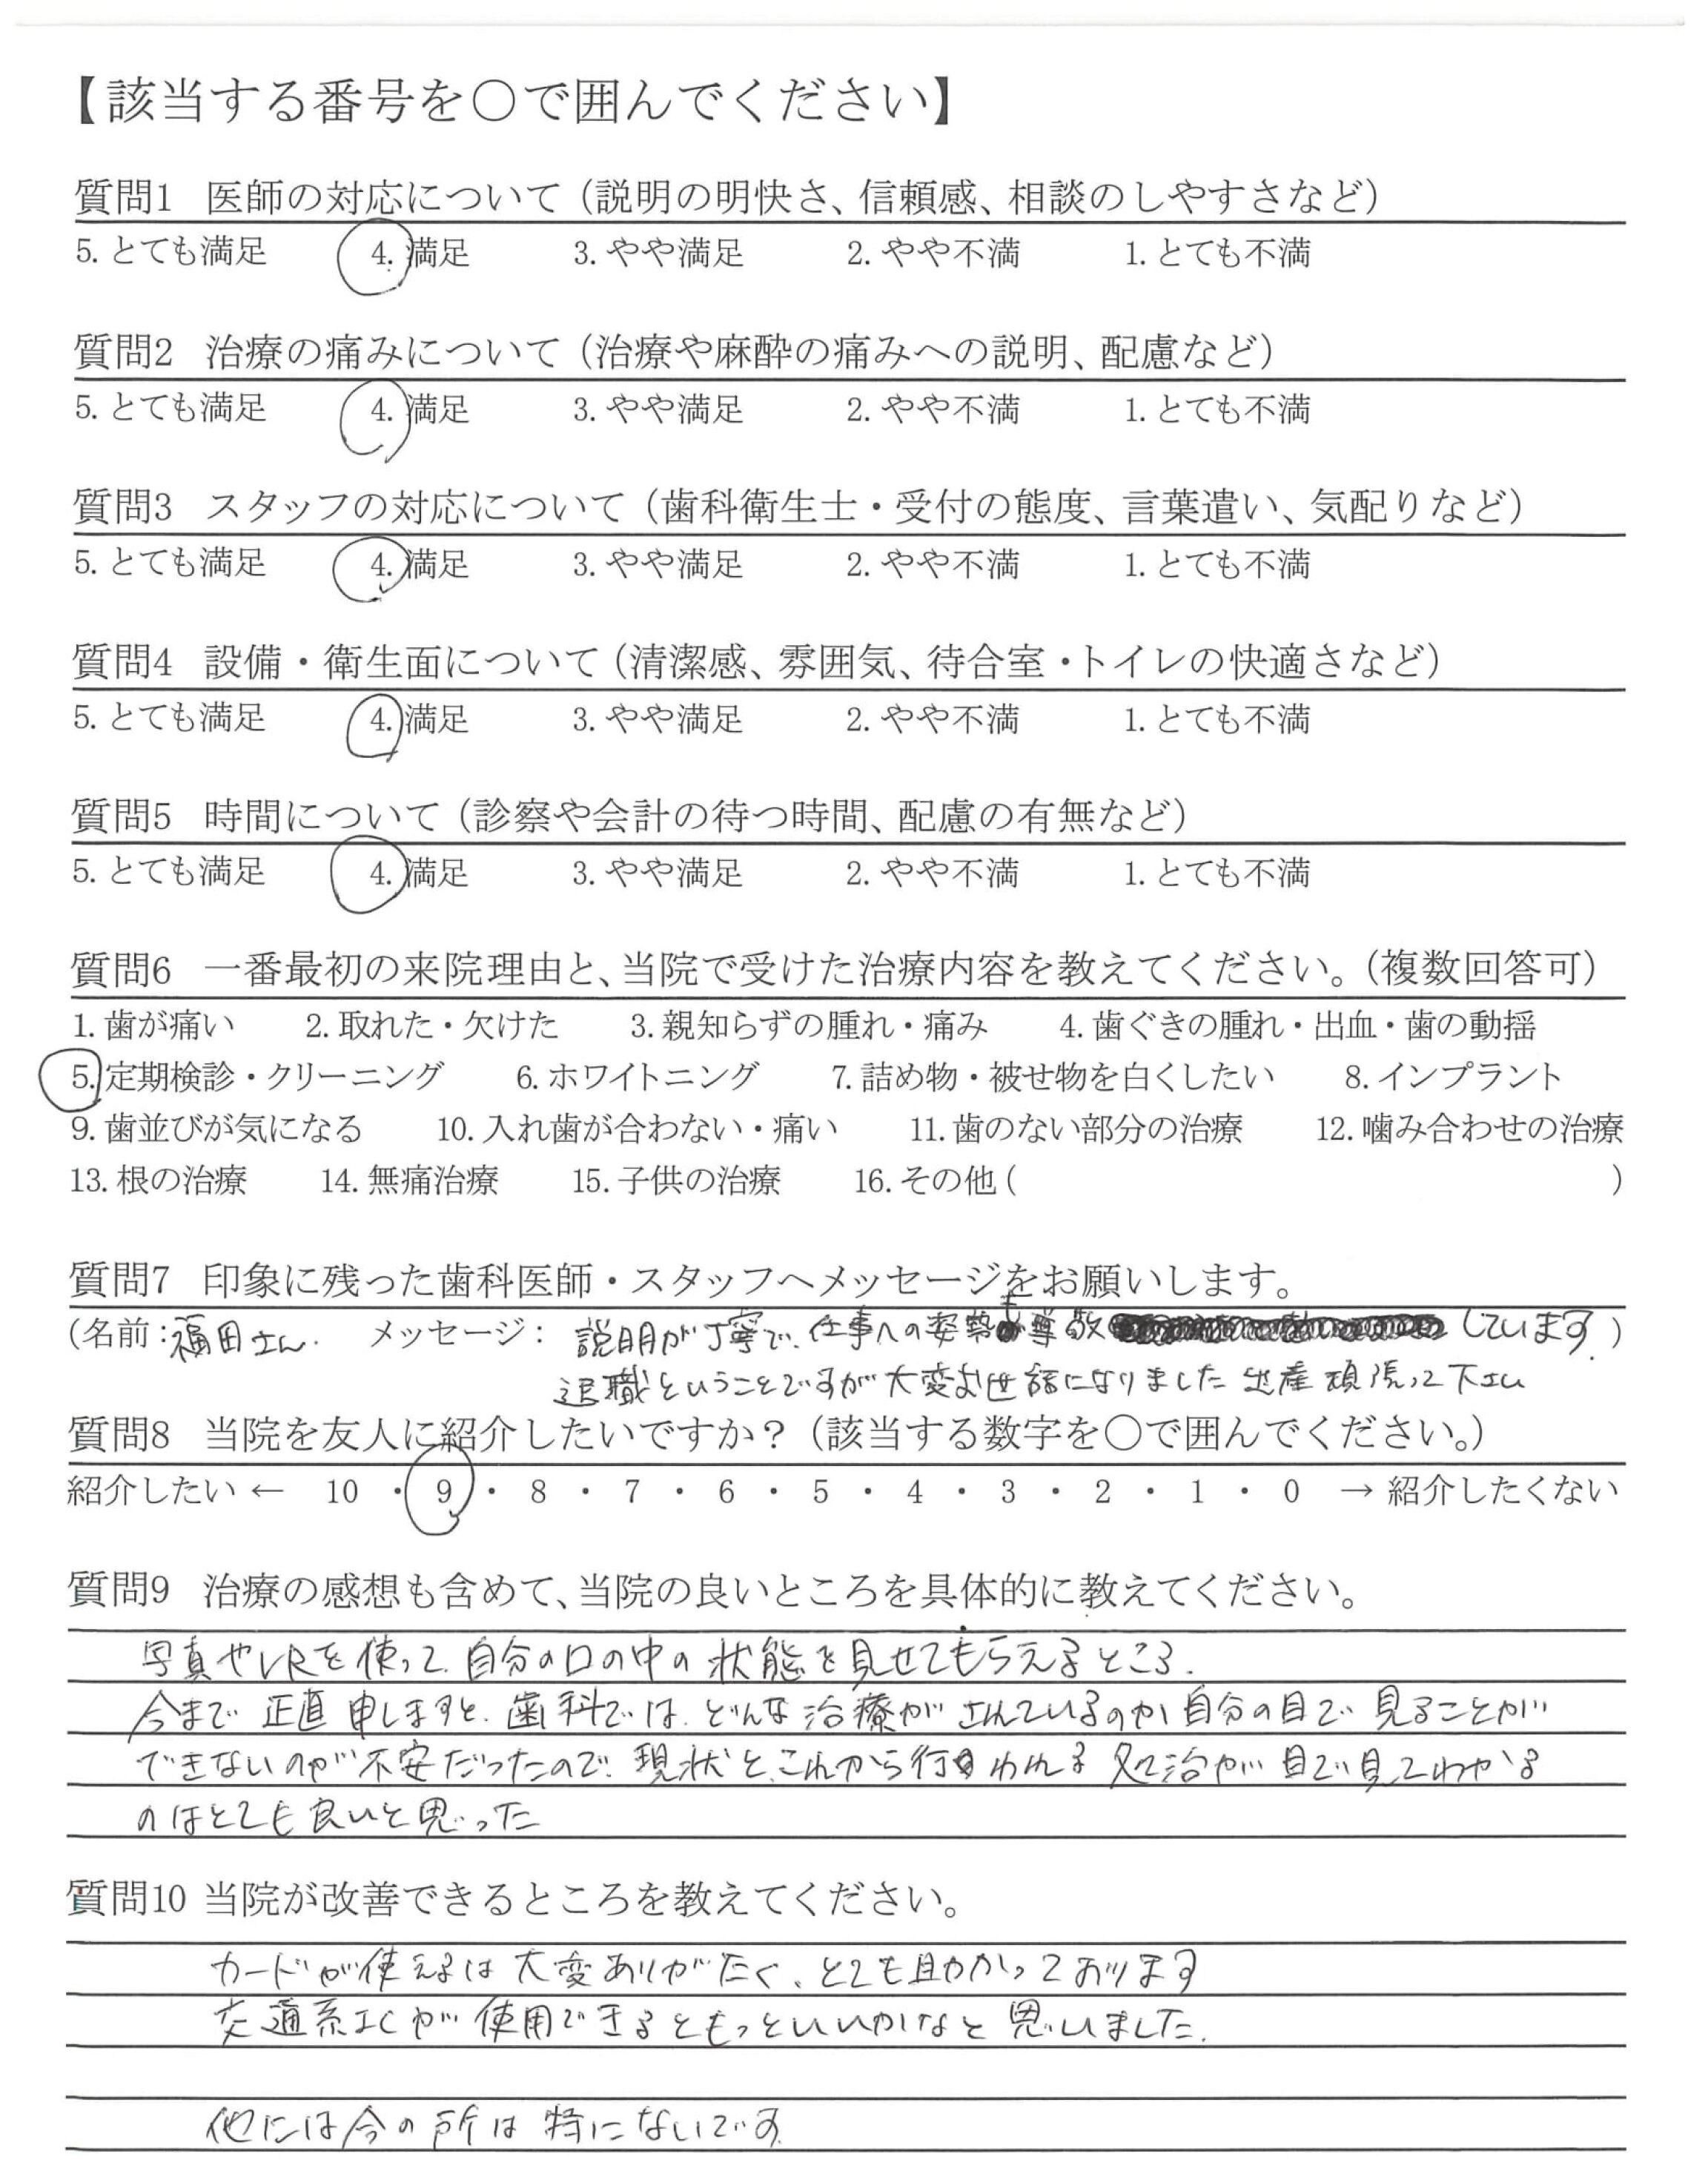 【該当する番号を〇で囲んでください】
質問1 医師の対応について（説明の明快さ、信頼感、相談のしやすさなど）
5. とても満足 4. 満足 3. やや満足 2. やや不満 1. とても不満
質問2 治療の痛みについて（治療や麻酔の痛みへの説明、配慮など）
5. とても満足 4. 満足 3. やや満足 2. やや不満 1. とても不満
質問3 スタッフの対応について（歯科衛生士・受付の態度、言葉遣い、気配りなど）
5. とても満足 4. 満足 3. やや満足 2. やや不満 1. とても不満
質問4 設備・衛生面について（清潔感、雰囲気、待合室・トイレの快適さなど）
5. とても満足 4. 満足 3. やや満足 2. やや不満 1. とても不満
質問5 時間について（診察や会計の待つ時間、配慮の有無など）
5. とても満足 4. 満足 3. やや満足 2. やや不満 1. とても不満
質問6 一番最初の来院理由と、当院で受けた治療内容を教えてください。（複数回答可）
1. 歯が痛い 2. 取れた・欠けた 3. 親知らずの腫れ・痛み 4. 歯ぐきの腫れ・出血・歯の動揺
5. 定期検診・クリーニング 6. ホワイトニング 7. 詰め物・被せ物を白くしたい 8. インプラント
9. 歯並びが気になる 10. 入れ歯が合わない・痛い 11. 歯のない部分の治療 12. 噛み合わせの治療
13. 根の治療 14. 無痛治療 15. 子供の治療 16. その他 ( )
質問7 印象に残った歯科医師・スタッフへメッセージをお願いします。
(名前：福田さん. メッセージ： 説明が丁寧で、仕事への姿勢も尊敬しています.)
退職ということですが大変お世話になりました 出産頑張って下さい
質問8 当院を友人に紹介したいですか？（該当する数字を〇で囲んでください。）
紹介したい ← 10 ・ 9 ・ 8 ・ 7 ・ 6 ・ 5 ・ 4 ・ 3 ・ 2 ・ 1 ・ 0 → 紹介したくない
質問9 治療の感想も含めて、当院の良いところを具体的に教えてください。
写真やVRを使って、自分の口の中の状態を見せてもらえるところ.
今まで正直申しますと、歯科では、どんな治療がされているのか自分の目で見ることが
できないのが不安だったので、現状と、これから行われる処治が目で見てわかる
のはとても良いと思った
質問10 当院が改善できるところを教えてください。
カードが使えるは大変ありがたく、とても助かっております
交通系ICが使用できるともっといいかなと思いました.
他には今の所は特にないです